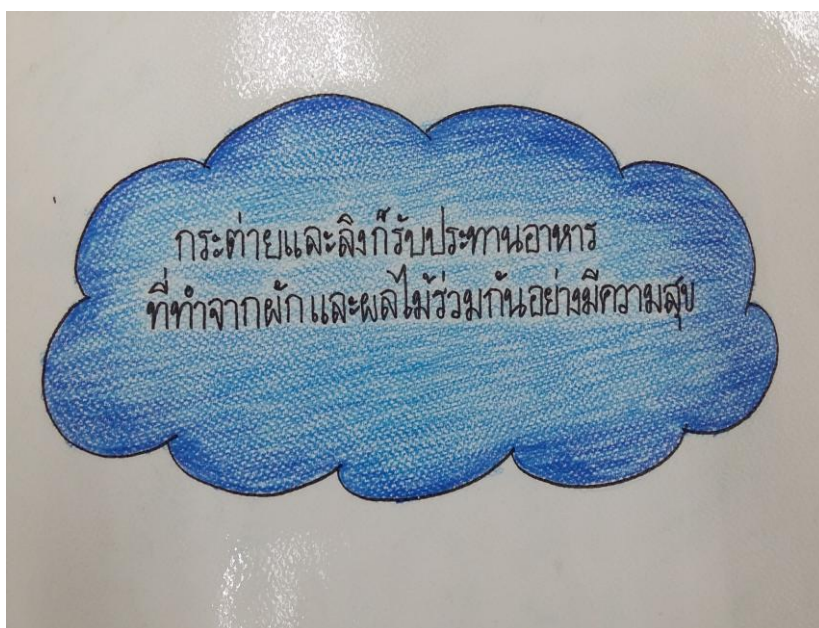 กระต่ายและลิงก็รับประทานอาหาร
ที่ทำจากผักและผลไม้ร่วมกันอย่างมีความสุข